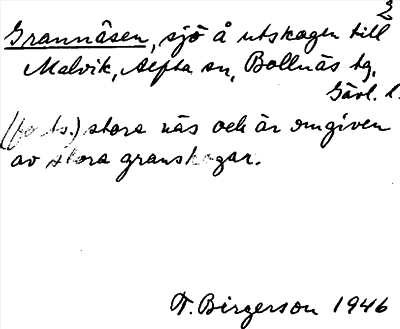 2
Grannäsen, sjö å utskogen till
Malvik, Alfta sn, Bollnäs tg,
Gävl. l.
(forts.) stora näs och är omgiven
av stora granskogar.
F. Birgerson 1946